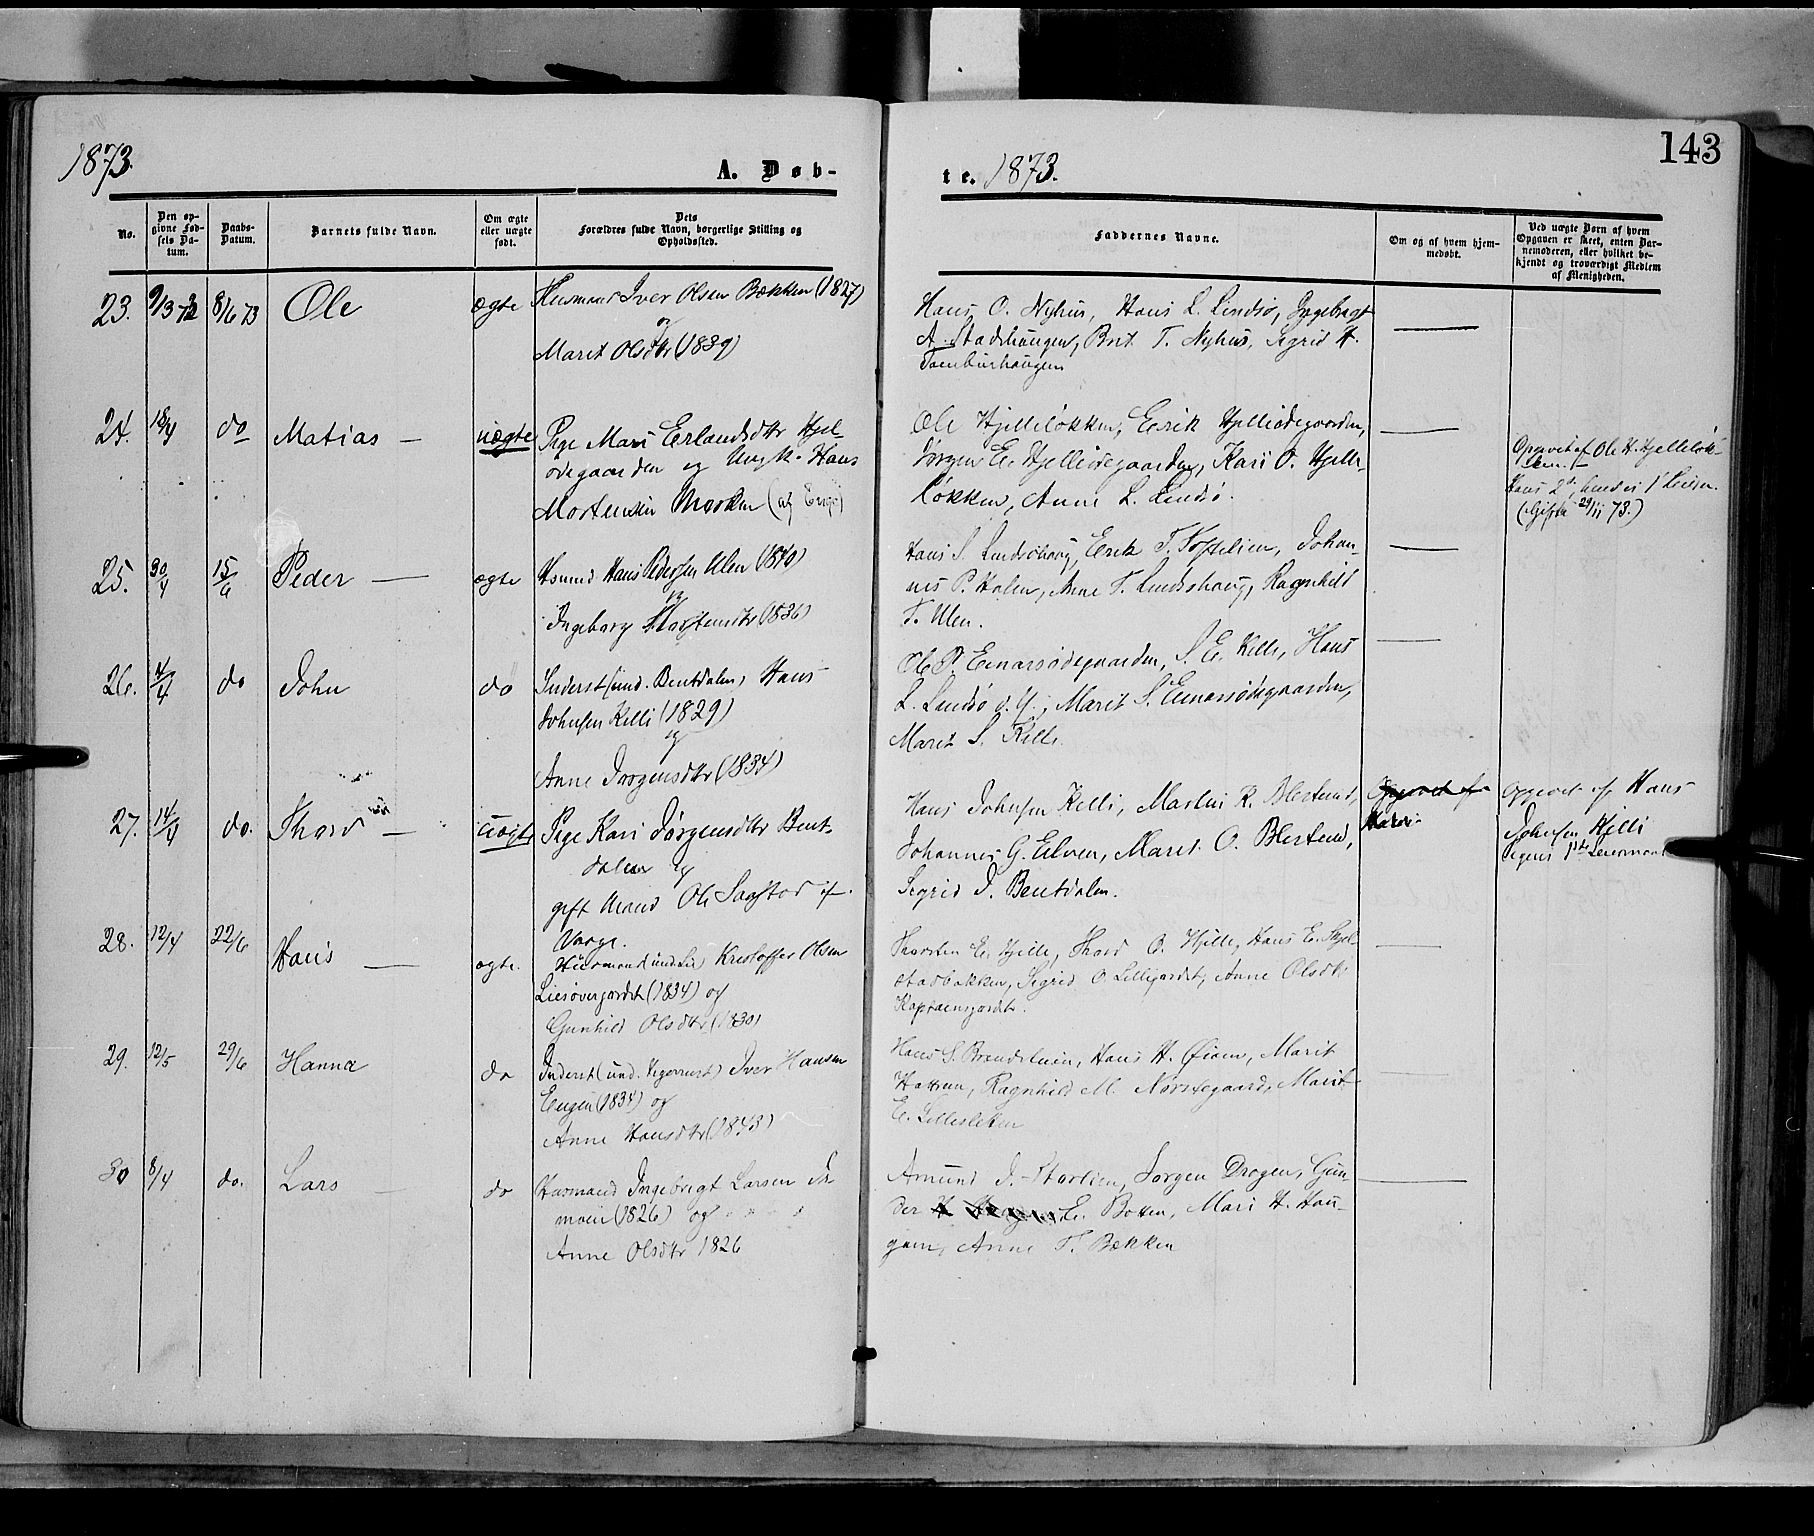 1873.
A. Døb-
te. 1873.
143
No.
Den op-
givne Fød-
sels Da-
tum.
Daabs-
Datum.
Barnets fulde Navn.
Om ægte
eller uægte
født.
Dets
Forældres fulde Navn, borgerlige Stilling og
Opholdssted.
Faddernes Navne.
Om og af hvem hjem-
medøbt.
Ved uægte Børn af hvem
Opgaven er skeet, enten Bar-
nemoderen, eller hvilket be-
kjendt og troværdigt Medlem
af Menigheden.
23. 9/3 8/6 73 Ole ægte Husmand Iver Olsen Bækken (1827)
og
Marit Olsdtr (1839)
Hans O. Nyhus, Hans L. Lindsø, Ingebregt
A. Stadshaugen, Brit T. Nyhus, Sigrid H.
24. 18/4 do Matias — uægte Pige Mari Erlandsdtr Hjel-
ødegaarden og Ungk. Hans
Mortensen Moeken (af Enge)
Ole Hjelleløkken, Erik Hjelleødegaarden,
Jørgen E. Hjelleødegaarden, Kari O. Hjelle-
løkken, Anne L. Lindsø.
Opgivet af Ole H. Hjelleløk-
ken.
Hans 2d, hendes 1 Leierm.
(Gifte 29/11 73.)
25. 30/4 15/6 Peder — ægte Hsmnd Hans Pedersen Ulen (1840)
og
Ingeborg Mortensdtr (1836)
Hans S. Lindsøhaug, Erik T. Toftelien, Johan-
nes P. Holen, Anne T. Lindshaug, Ragnhild
T. Ulen.
26. 4/4 do John do Inderst (und. Bentdalen) Hans
Johnsen Kelli (1829)
og
Anne Jørgensdtr (1834)
Ole P. Einarsødegaarden, S. E. Kelli, Hans
L. Lindsø d. Y., Marit S. Einarsødegaarden,
Marit S. Kelli.
27. 14/4 do. Thord — uægte Pige Kari Jørgensdtr Bent-
dalen og
gift Mand Ole Sagstad if.
Vaage.
Hans Johnsen Kelli, Martin R. Blestrud,
Johannes G. Elven, Marit O. Blestrud,
Sigrid J. Bentdalen.
Opgivet af
Opgivet af Hans
Johnsen Kjelli
Pigens 1ste Leiermaal
28. 12/4 22/6 Hans — ægte. Husmand (und. Lie) Kristoffer Olsen
Liesøvergjordet (1834) og
Gunhild Olsdtr (1830)
Thorsten E. Hjelle, Thord O. Hjelle, Hans E. Skjel-
stadbakken, Sigrid O. Lillegjordet, Anne Olsdtr
Kapteinsgjordet.
29. 12/5 29/6 Hanna do Inderst (und. Vigerust) Iver Hansen
Engen (1834) og
Anne Hansdtr (1843)
Hans S. Brendelien, Hans H. Øien, Marit
Hattrem, Ragnhild M. Norstegaard, Marit
E. Lillesletten
30 8/4 do. Lars — do Husmand Ingebrigt Larsen
moen (1826) og
Anne Olsdtr 1826
Amund J. Storlien, Jørgen Dragen, Gun-
der E. Botten, Mari H. Hau-
gen, Anne T. Bækken